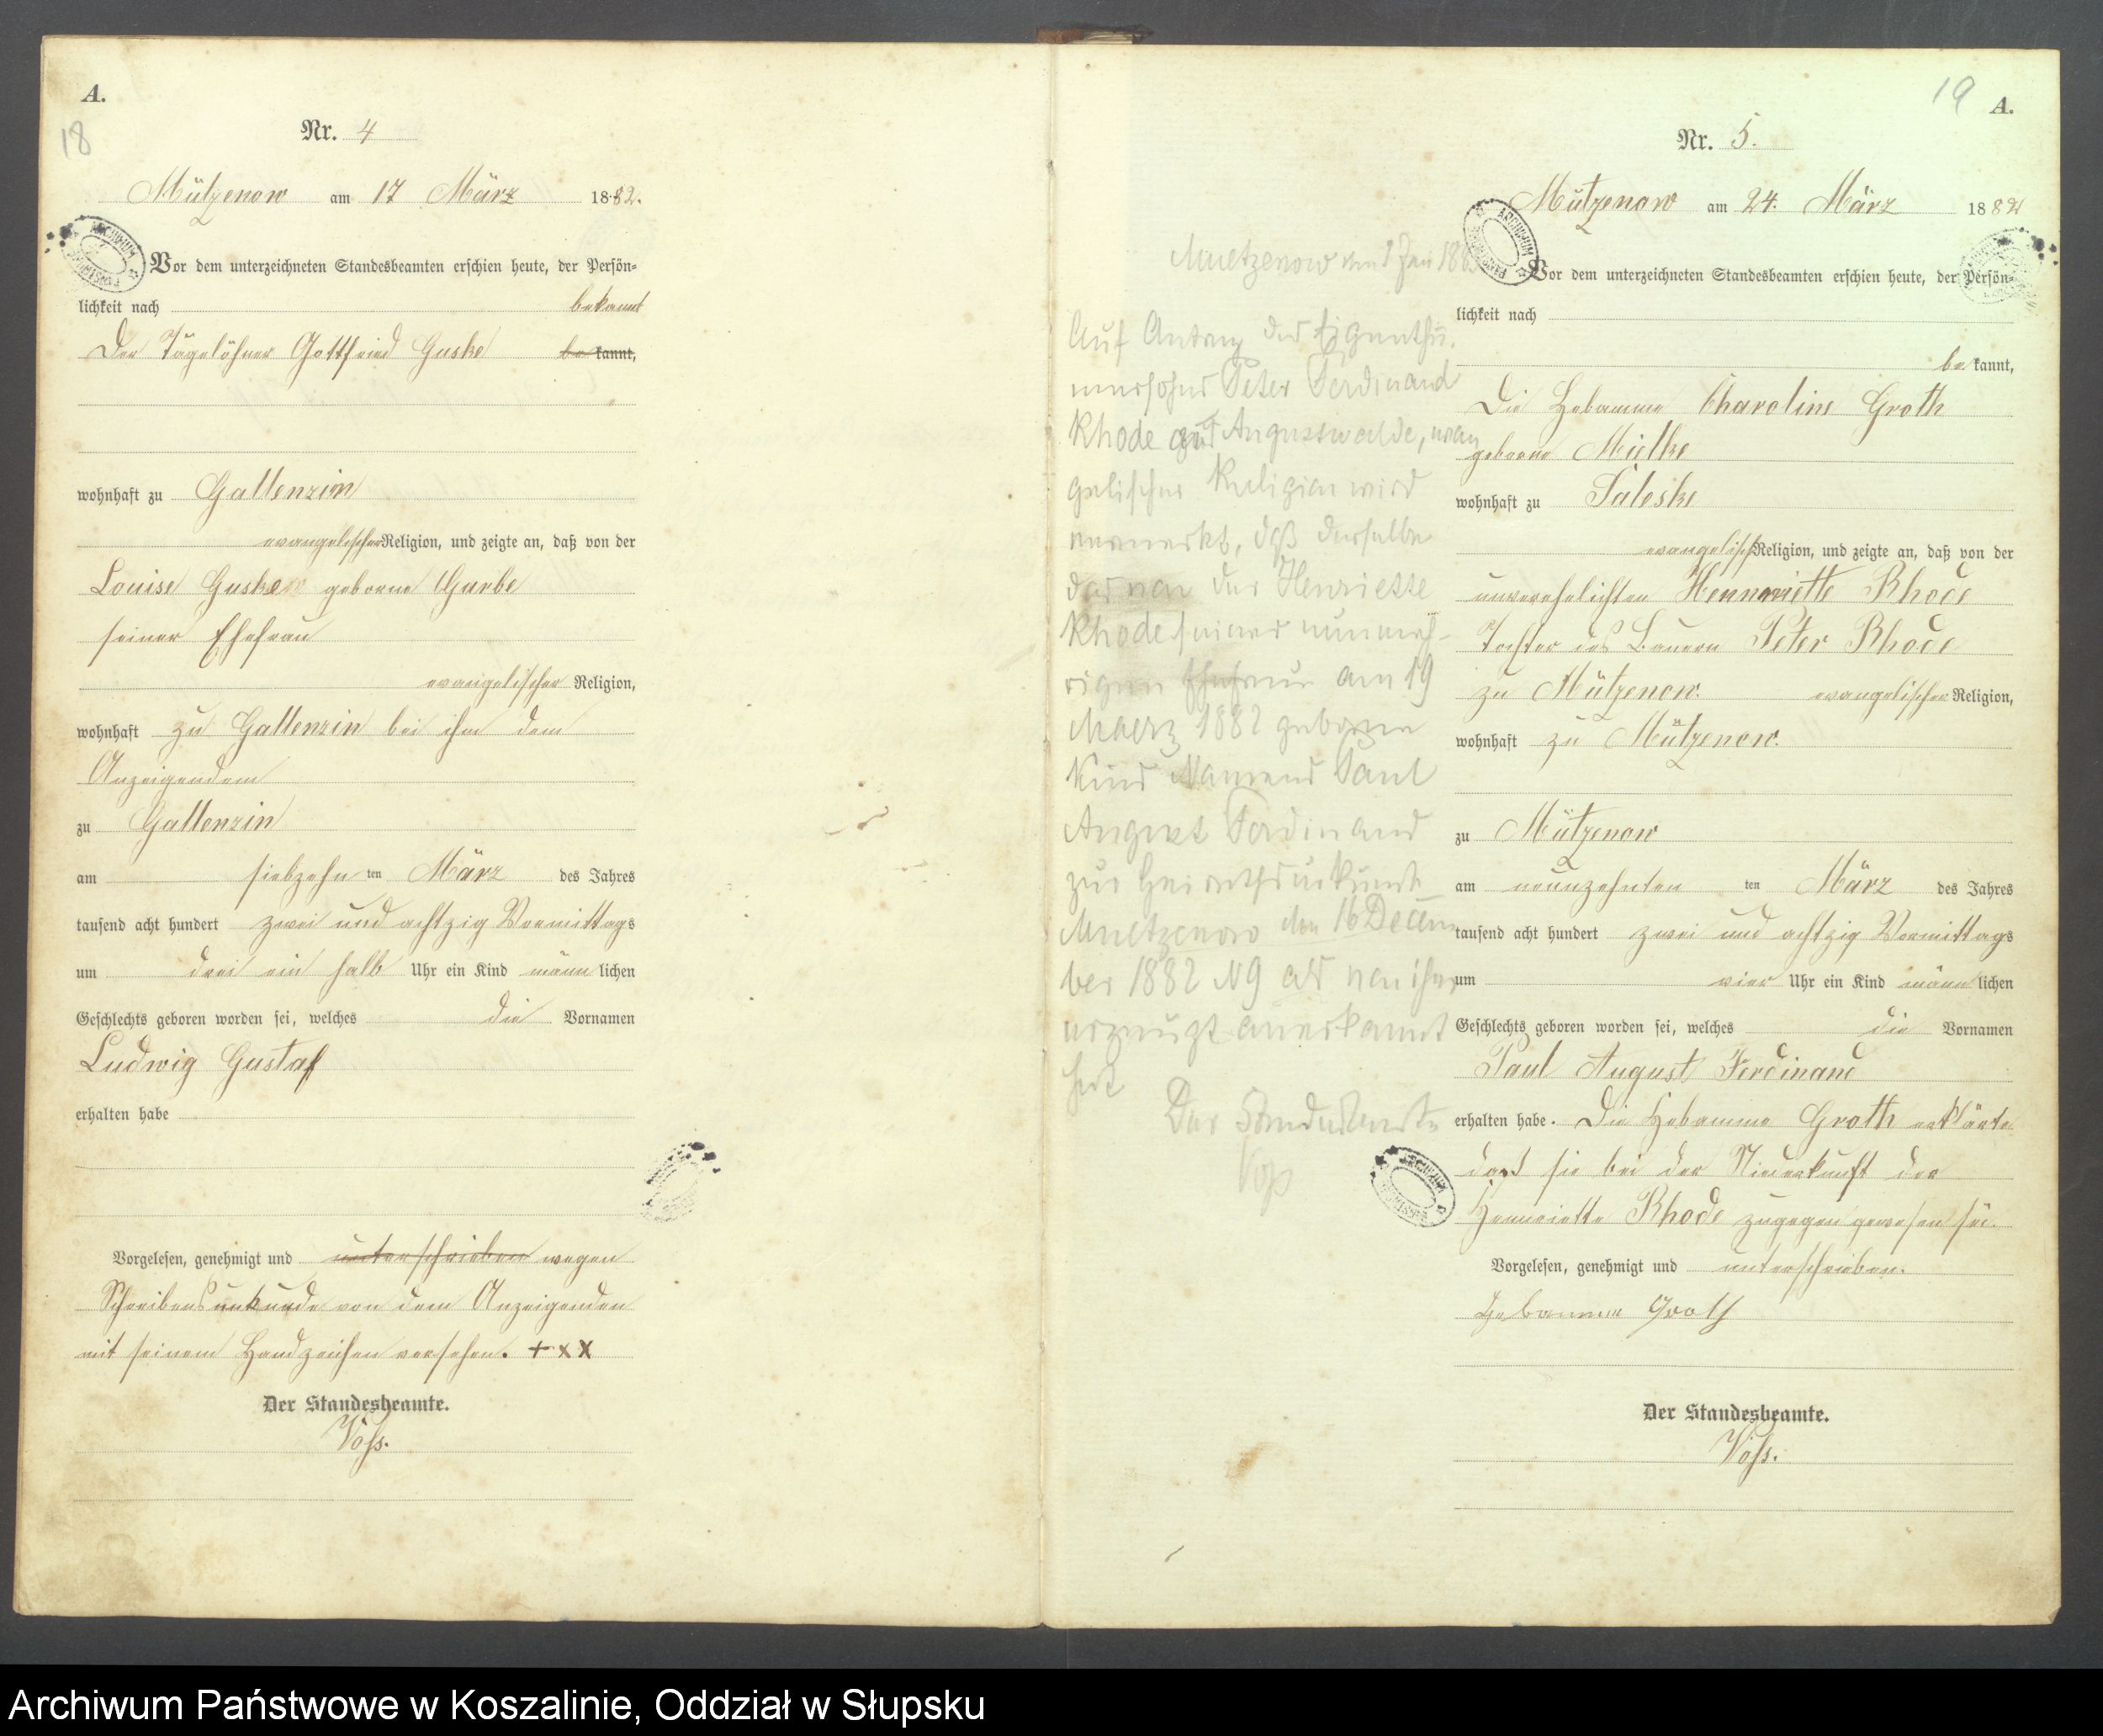 A.
18
Nr. 4
Mützenow am 17 März 1882.
Vor dem unterzeichneten Standesbeamten erschien heute, der Persön-
lichkeit nach bekannt
Der Tagelöhner Gottfried Guske be kannt,
wohnhaft zu Gallenzin
evangelischer Religion, und zeigte an, daß von der
Louise Guske geborne Garbe
seiner Ehefrau
evangelischer Religion,
wohnhaft zu Gallenzin bei ihm dem
Anzeigendem
zu Gallenzin
am siebzehn ten März des Jahres
tausend acht hundert zwei und achtzig Vormittags
um drei ein halb Uhr ein Kind männ lichen
Geschlechts geboren worden sei, welches die Vornamen
Ludwig Gustaf
erhalten habe
Vorgelesen, genehmigt und unterschrieben wegen
Schreibensunkunde von dem Anzeigenden
mit seinem Handzeichen versehen. + x x
Der Standesbeamte.
Voß.
Muetzenow den 188
Auf Antrag des Eigenthü-
mersohns Peter Ferdinand
Rhode aus Augustwalde, evan
gelischer Religion wird
vermerkt, daß derselbe
das von der Henriette
Rhode seiner nunmeh-
rigen Ehefrau am 19
Maerz 1882 geborene
Kind Namens Paul
August Ferdinand
zur Heirathsurkunde
Muetzenow den 16 Decem
ber 1882 N 9 als von ihm
erzeugt anerkannt
hat
Der Standesbeamte
Voß
19
A.
Nr. 5.
Mützenow am 24. März 1882
Vor dem unterzeichneten Standesbeamten erschien heute, der Persön-
lichkeit nach
be kannt,
Die Hebamme Charoline Groth
geborne Mielke
wohnhaft zu Saleske
evangelisch Religion, und zeigte an, daß von der
unverehelichten Hennriette Rhode
Tochter des Bauern Peter Rhode
zu Mützenow. evangelischer Religion,
wohnhaft zu Mützenow.
zu Mützenow
am neunzehnten ten März des Jahres
tausend acht hundert zwei und achtzig Vormittags
um vier Uhr ein Kind männ lichen
Geschlechts geboren worden sei, welches die Vornamen
Paul August Ferdinand
erhalten habe. Die Hebamme Groth erklärte
daß sie bei der Niederkunft der
Hennriette Rhode zugegen gewesen sei.
Vorgelesen, genehmigt und unterschrieben.
Hebamme Groth
Der Standesbeamte.
Voß.
Archiwum Państwowe w Koszalinie, Oddział w Słupsku